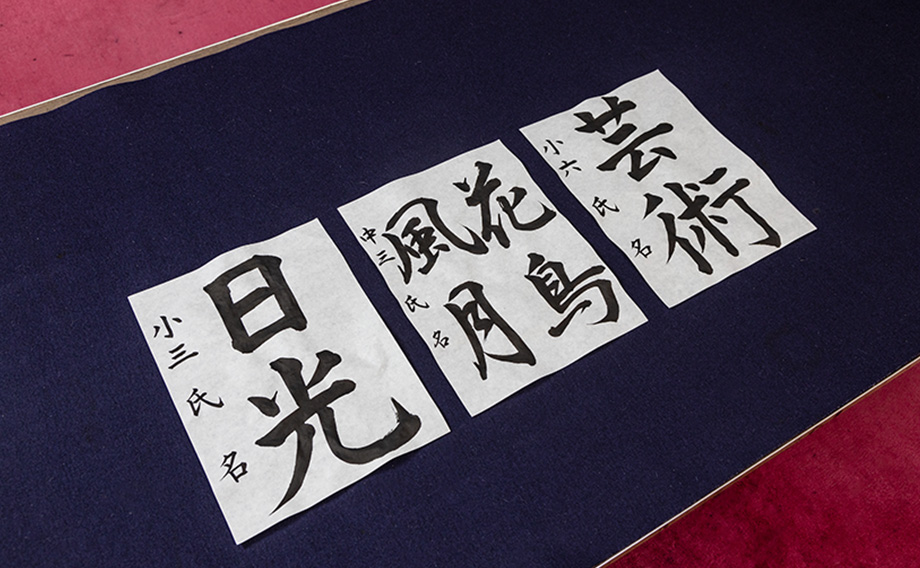 日光
小三 氏名
花鳥
風月
中三 氏名
芸術
小六 氏名